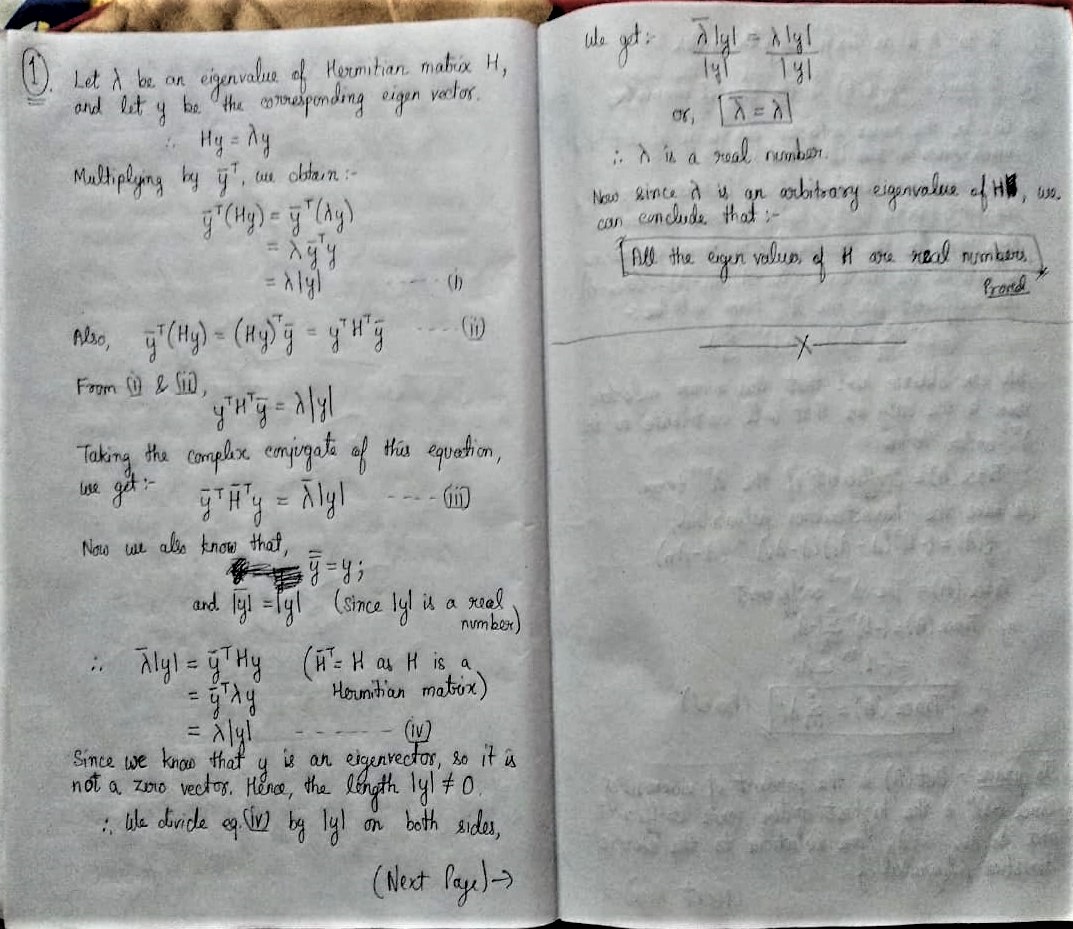 1.
Let λ be an eigenvalue of Hermitian matrix H,
and let y be the corresponding eigen vector.
∴ Hy = λy
Multiplying by ȳᵀ, we obtain :-
ȳᵀ(Hy) = ȳᵀ(λy)
= λȳᵀy
= λ|y| ---- (i)
Also, ȳᵀ(Hy) = (Hy)ᵀȳ = yᵀHᵀȳ ---- (ii)
From (i) & (ii),
yᵀHᵀȳ = λ|y|
Taking the complex conjugate of this equation,
we get :-
ȳᵀH̄ᵀy = λ̄|y| ---- (iii)
Now we also know that,
y̿ = y;
and |ȳ| = |y| (since |y| is a real
number)
∴ λ̄|y| = ȳᵀHy (H̄ᵀ = H as H is a
Hermitian matrix)
= ȳᵀλy
= λ|y| ------- (iv)
Since we know that y is an eigenvector, so it is
not a zero vector. Hence, the length |y| ≠ 0.
∴ We divide eq. (iv) by |y| on both sides,
(Next Page) →
We get :- λ̄|y| = λ|y|
|y| |y|
or, λ̄ = λ
∴ λ is a real number.
Now since λ is an arbitrary eigenvalue of H, we
can conclude that :-
All the eigen values of H are real numbers
Proved
X